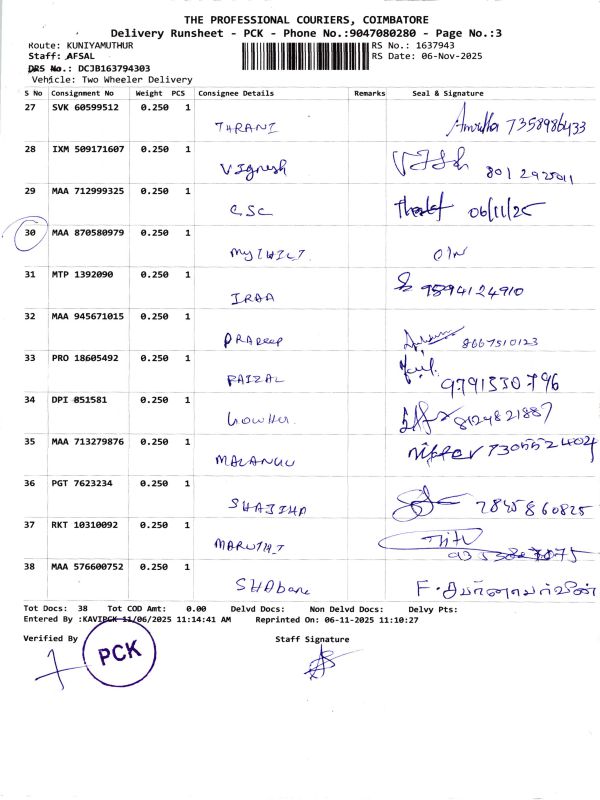 THE PROFESSIONAL COURIERS, COIMBATORE
Delivery Runsheet - PCK - Phone No.:9047080280 - Page No.:3
Route: KUNIYAMUTHUR RS No.: 1637943
Staff: AFSAL RS Date: 06-Nov-2025
DRS No.: DCJB163794303
Vehicle: Two Wheeler Delivery
S No Consignment No Weight PCS Consignee Details Remarks Seal & Signature
27 SVK 60599512 0.250 1
THRANI 7358986433
28 IXM 509171607 0.250 1
Vignesh
29 MAA 712999325 0.250 1
CSC 06/11/25
30 MAA 870580979 0.250 1
31 MTP 1392090 0.250 1
IRAA 9894124910
32 MAA 945671015 0.250 1
PRADEEP 8667510123
33 PRO 18605492 0.250 1
FAIZAL 9791330796
34 DPI 851581 0.250 1
8124821887
35 MAA 713279876 0.250 1
730552404
36 PGT 7623234 0.250 1
2845860825
37 RKT 10310092 0.250 1
MARUTHI
38 MAA 576600752 0.250 1
Tot Docs: 38 Tot COD Amt: 0.00 Delvd Docs: Non Delvd Docs: Delvy Pts:
Entered By :KAVIPCK 11/06/2025 11:14:41 AM Reprinted On: 06-11-2025 11:10:27
Verified By Staff Signature
PCK